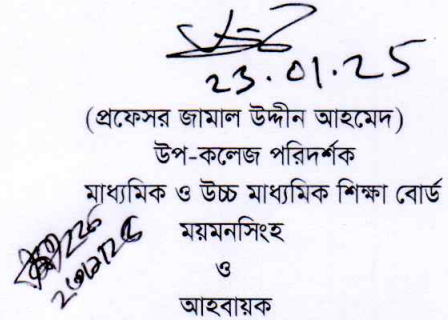 23.01.25
(প্রফেসর জামাল উদ্দীন আহমেদ)
উপ-কলেজ পরিদর্শক
মাধ্যমিক ও উচ্চ মাধ্যমিক শিক্ষা বোর্ড
ময়মনসিংহ
ও
আহবায়ক